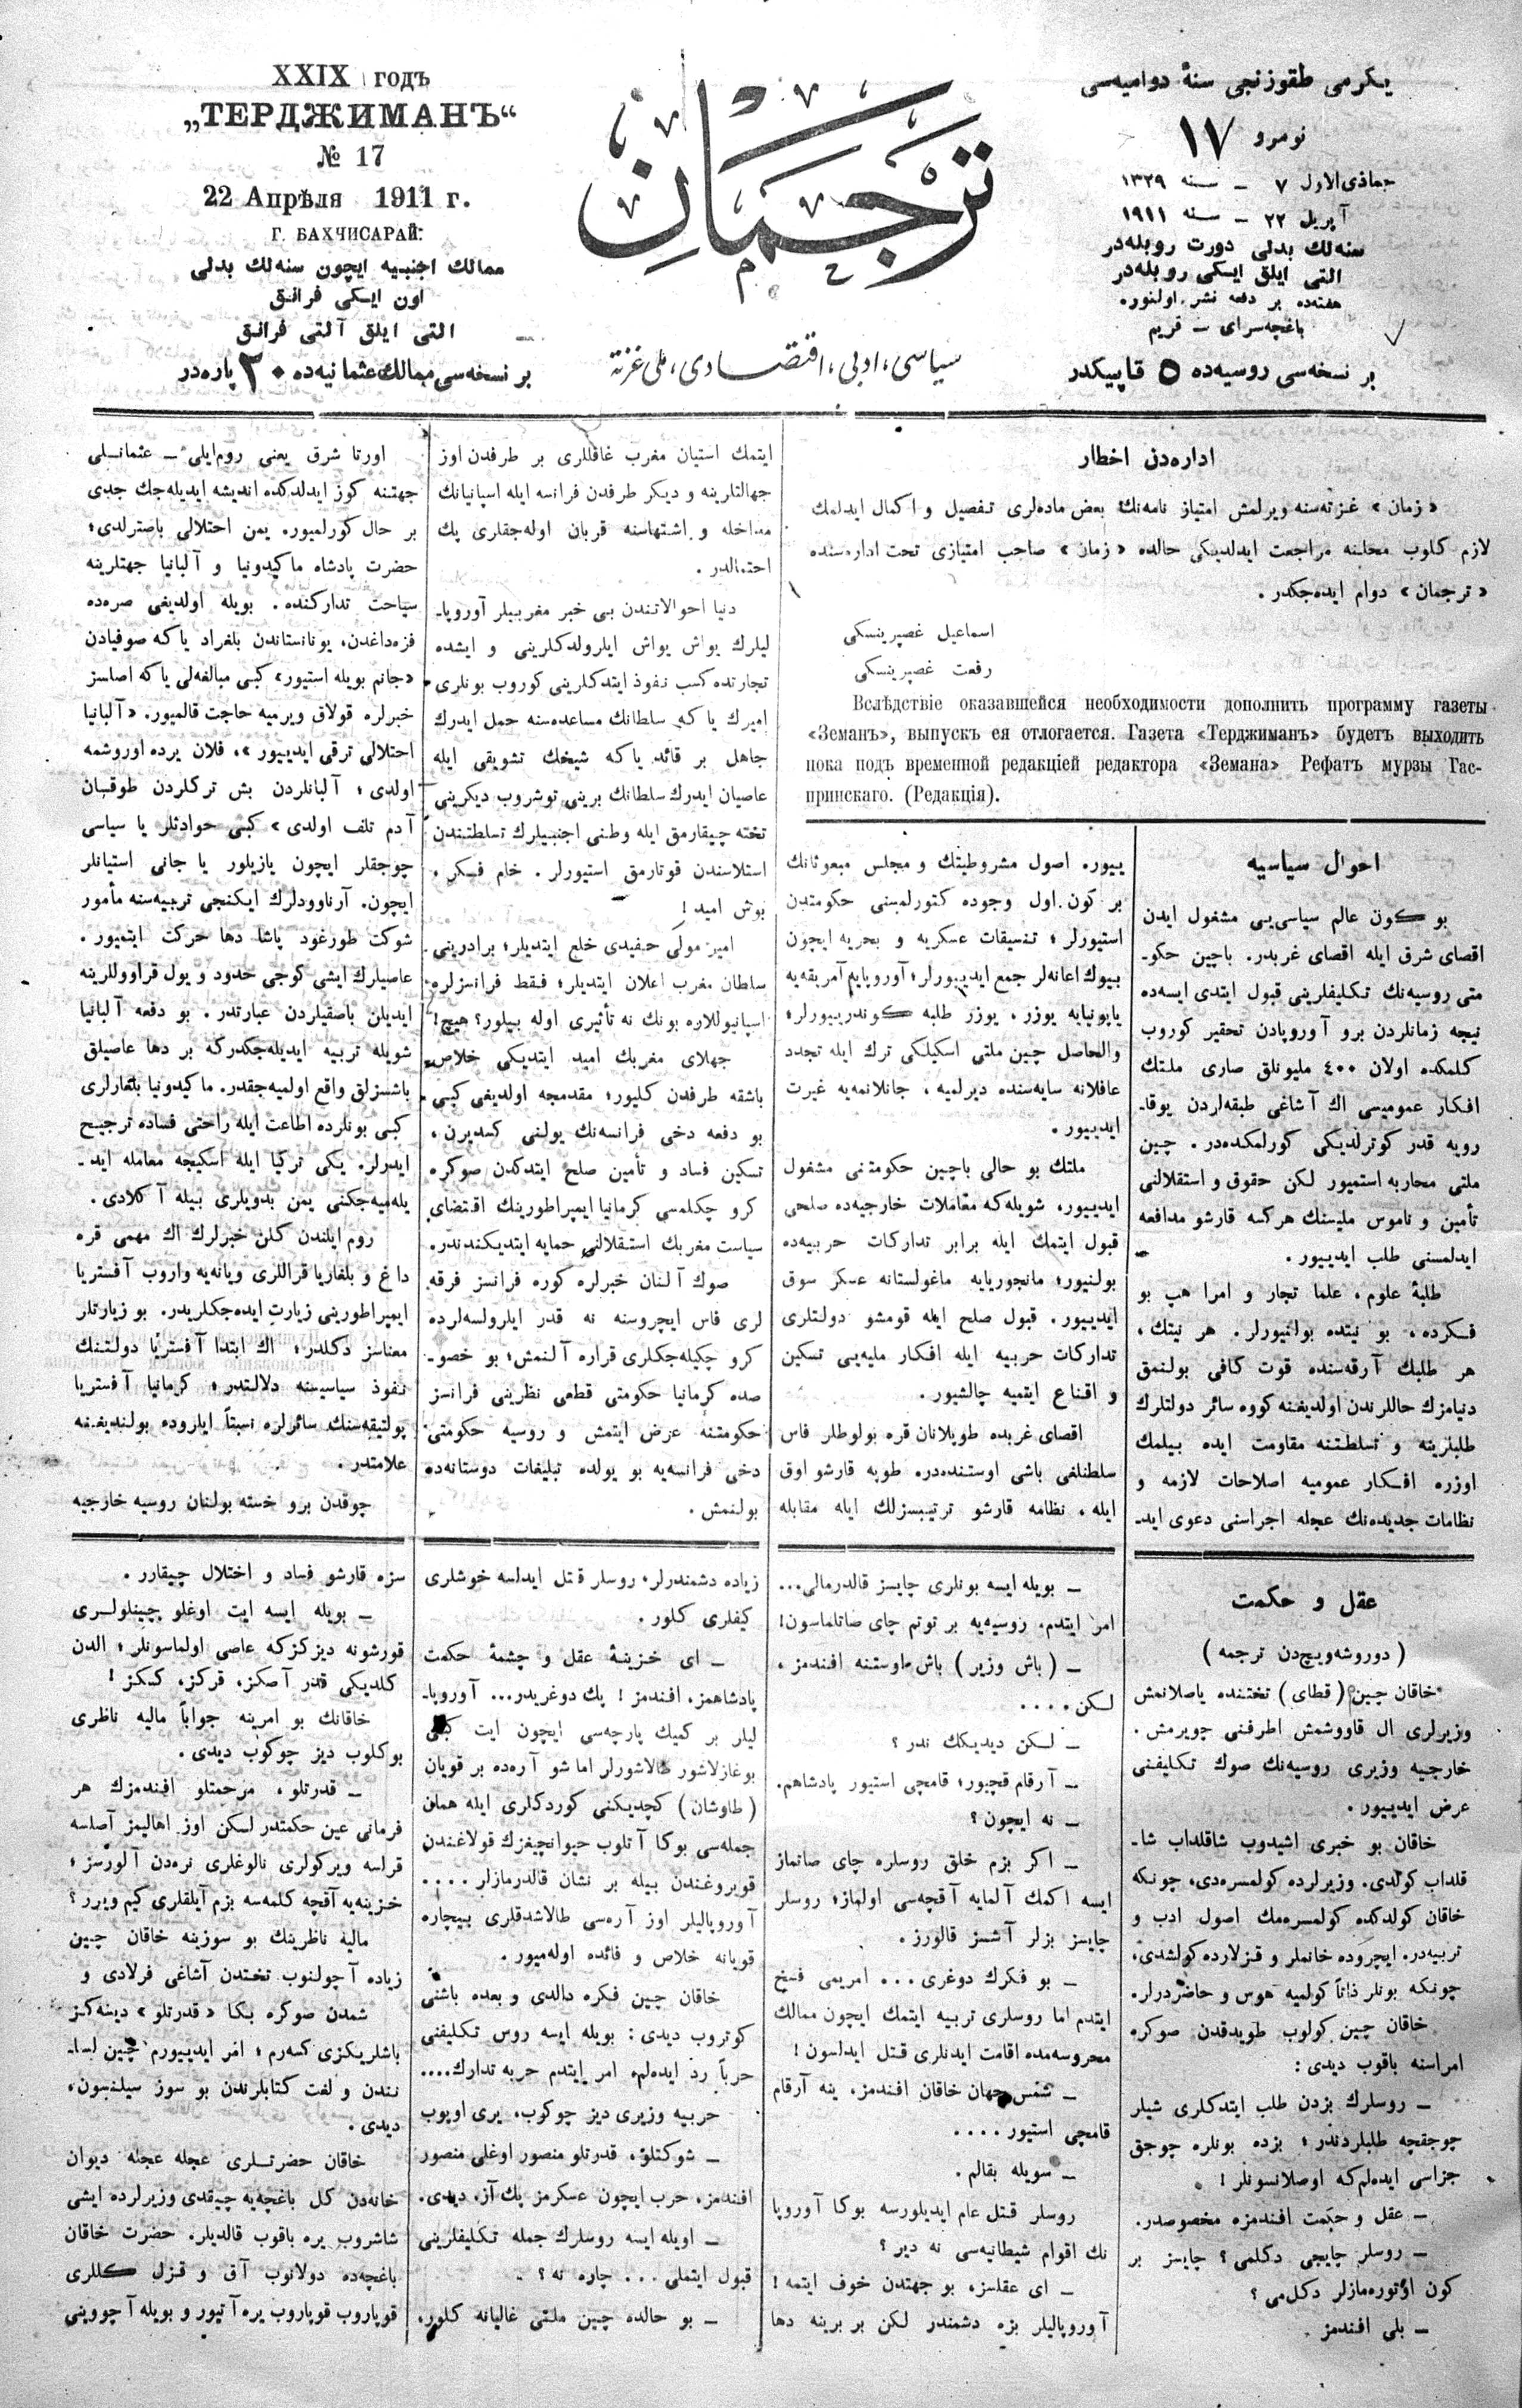 XXIX годъ
„ТЕРДЖИМАНЪ“
№ 17
22 Апрѣля 1911 г.
Г. БАХЧИСАРАЙ.
ممالك اجنبیه ایچون سنه‌لك بدلی
اون ایكی فرانق
التی ایلق آلتی فرانق
بر نسخه‌سی ممالك عثمانیه‌ده ۲۰ پاره‌در
ترجمان
سیاسی، ادبی، اقتصادی، ملی غزته
یكرمی طقوزنجی سنهٔ دوامیه‌سی
نومرو ۱۷
جماذی‌الاول ۷ – سنه ۱۳۲۹
آپریل ۲۲ – سنه ۱۹۱۱
سنه‌لك بدلی دورت روبله‌در
التی ایلق ایكی روبله‌در
هفته‌ده بر دفعه نشر اولنور.
باغچه‌سرای – قریم
بر نسخه‌سی روسیه‌ده ۵ قاپیكدر
اداره‌دن اخطار
«زمان» غزته‌سنه ویرلمش امتیاز نامه‌نك بعض ماده‌لری تفصیل و اكمال ایدلمك
لازم كلوب محلینه مراجعت ایدلدیكی حالده «زمان» صاحب امتیازی تحت اداره‌سنده
«ترجمان» دوام ایده‌جكدر.
اسماعیل غصپرینسكی
رفعت غصپرینسكی
Вслѣдствіе оказавшейся необходимости дополнить программу газеты
«Земанъ», выпускъ ея отлогается. Газета «Терджиманъ» будетъ выходить
пока подъ временной редакціей редактора «Земана» Рефатъ мурзы Гас-
принскаго. (Редакція).
احوال سیاسیه
بو كون عالم سیاسی‌یی مشغول ایدن
اقصای شرق ایله اقصای غربدر. پاچین حكو-
متی روسیه‌نك تكلیفلرینی قبول ایتدی ایسه‌ده
نیچه زمانلردن برو آوروپادن تحقیر كوروب
كلمكده اولان ۴۰۰ ملیونلق صاری ملتك
افكار عمومیسی اك آشاغی طبقه‌لردن یوقا-
رویه قدر كوترلدیكی كورلمكده‌در. چین
ملتی محاربه استمیور لكن حقوق و استقلالنی
تأمین و ناموس ملیسنك هركسه قارشو مدافعه
ایدلمسنی طلب ایدییور.
طلبهٔ علوم، علما تجار و امرا هپ بو
فكرده، بو نیتده بولنیورلر. هر نیتك،
هر طلبك آرقه‌سنده قوت كافی بولنمق
دنیامزك حاللرندن اولدیغنه كوره سائر دولتلرك
طلبلرینه و تسلطنه مقاومت ایده بیلمك
اوزره افكار عمومیه اصلاحات لازمه و
نظامات جدیده‌نك عجله اجراسنی دعوی اید-
ییور. اصول مشروطیتك و مجلس مبعوثانك
بر كون اول وجوده كتورلمسنی حكومتدن
استیورلر؛ تنسیقات عسكریه و بحریه ایچون
بیوك اعانه‌لر جمع ایدییورلر؛ آوروپایه آمریقه‌یه
یاپونیایه یوزر، یوزر طلبه كوندرییورلر؛
والحاصل چین ملتی اسكیلكی ترك ایله تجدد
عاقلانه سایه‌سنده دیرلمیه، جانلانمه‌یه غیرت
ایدییور.
ملتك بو حالی پاچین حكومتنی مشغول
ایدییور، شویله‌كه معاملات خارجیه‌ده صلحی
قبول ایتمك ایله برابر تداركات حربیه‌ده
بولنیور؛ مانجوریایه ماغولستانه عسكر سوق
ایدییور. قبول صلح ایله قومشو دولتلری
تداركات حربیه ایله افكار ملیه‌یی تسكین
و اقناع ایتمیه چالشیور.
اقصای غربده طوپلانان قره بولوطلر فاس
سلطنلغی باشی اوستنده‌در. طوپه قارشو اوق
ایله، نظامه قارشو ترتیبسزلك ایله مقابله
ایتمك استیان مغرب غافللری بر طرفدن اوز
جهالتلرینه و دیكر طرفدن فرانسه ایله اسپانیانك
مداخله و اشتهاسنه قربان اوله‌جقلری پك
احتمالدر.
دنیا احوالاتندن بی خبر مغربیلر آوروپا-
لیلرك یواش یواش ایلرولدكلرینی و ایشده
تجارتده كسب نفوذ ایتدكلرینی كوروب بونلری
امیرك یاكه سلطانك مساعده‌سنه حمل ایدرك
جاهل بر قائد یاكه شیخك تشویقی ایله
عاصیان ایدرك سلطانك برینی توشروب دیكرینی
تخته چیقارمق ایله وطنی اجنبیلرك تسلطندن
استلاسندن قوتارمق استیورلر. خام فكر،
بوش امید!
امیر مولی حفیدی خلع ایتدیلر؛ برادرینی
سلطان مغرب اعلان ایتدیلر؛ فقط فرانسزلره
اسپانیوللاره بونك نه تأثیری اوله بیلور؟ هیچ!
جهلای مغربك امید ایتدیكی خلاص
باشقه طرفدن كلیور؛ مقدمجه اولدیغی كبی
بو دفعه دخی فرانسه‌نك یولنی كسدیرن،
تسكین فساد و تأمین صلح ایتدكدن صوكره
كرو چكلمسی كرمانیا ایمپراطورینك اقتضای
سیاست مغربك استقلالنی حمایه ایتدیكندندر.
صوك آلنان خبرلره كوره فرانسز فرقه
لری فاس ایچروسنه نه قدر ایلرولسه‌لرده
كرو چكیله‌جكلری قراره آلنمش؛ بو خصو-
صده كرمانیا حكومتی قطعی نظرینی فرانسز
حكومتنه عرض ایتمش و روسیه حكومتی
دخی فرانسه‌یه بو یولده تبلیغات دوستانه‌ده
بولنمش.
اورتا شرق یعنی روم‌ایلی – عثمانلی
جهتنه كوز ایدلدكده اندیشه ایدیله‌جك جدی
بر حال كورلمیور. یمن احتلالی باصترلدی؛
حضرت پادشاه ماكیدونیا و آلبانیا جهتلرینه
سیاحت تداركنده. بویله اولدیغی صره‌ده
قزه‌داغدن، یونانستاندن بلغراد یاكه صوفیادن
«جانم بویله استیور» كبی مبالغه‌لی یاكه اصلسز
خبرلره قولاق ویرمیه حاجت قالمیور. «آلبانیا
احتلالی ترقی ایدییور»، فلان یرده اوروشمه
اولدی؛ آلبانلردن بش تركلردن طوقسان
آدم تلف اولدی» كبی حوادثلر یا سیاسی
چوجقلر ایچون یازیلور یا جانی استیانلر
ایچون. آرناوودلرك ایكنجی تربیه‌سنه مأمور
شوكت طورغود پاشا دها حركت ایتمیور.
عاصیلرك ایشی كوجی حدود و یول قراووللرینه
ایدیلن باصقیلردن عبارتدر. بو دفعه آلبانیا
شویله تربیه ایدیله‌جكدركه بر دها عاصیلق
باشسزلق واقع اولمیه‌جقدر. ماكیدونیا بلغارلری
كبی بونلرده اطاعت ایله راحتی فساده ترجیح
ایدرلر. یكی تركیا ایله اسكیجه معامله اید-
یله‌میه‌جكنی یمن بدویلری بیله آكلادی.
روم ایلندن كلن خبرلرك اك مهمی قره
داغ و بلغاریا قراللری ویانه‌یه واروب آفستریا
ایمپراطورینی زیارت ایده‌جكلریدر. بو زیارتلر
معناسز دكلدر؛ اك ابتدا آفستریا دولتنك
نفوذ سیاسیسنه دلالتدر؛ كرمانیا آفستریا
پولتیقه‌سنك سائرلره نسبتاً ایلروده بولندیغنه
علامتدر.
چوقدن برو خسته بولنان روسیه خارجیه
عقل و حكمت
(دوروشه‌ویچ‌دن ترجمه)
خاقان چین (قطای) تختنده یاصلانمش
وزیرلری ال قاووشمش اطرفنی چویرمش.
خارجیه وزیری روسیه‌نك صوك تكلیفنی
عرض ایدییور.
خاقان بو خبری اشیدوب شاقلداب شا-
قلداب كولدی. وزیرلرده كولمسره‌دی، چونكه
خاقان كولدكده كولمسره‌مك اصول ادب و
تربیه‌در. ایچروده خانملر و قزلارده كولشدی،
چونكه بونلر ذاتاً كولمیه هوس و حاضردرلر.
خاقان چین كولوب طویدقدن صوكره
امراسنه باقوب دیدی:
– روسلرك بزدن طلب ایتدكلری شیلر
چوجقچه طلبلردندر؛ بزده بونلره چوجق
جزاسی ایده‌لم‌كه اوصلانسونلر!
– عقل و حكمت افندمزه مخصوصدر.
– روسلر چایجی دكلمی؟ چایسز بر
كون اوتوره‌مازلر دكل‌می؟
– بلی افندمز.
– بویله ایسه بونلری چایسز قالدرمالی...
امر ایتدم، روسیه‌یه بر توتم چای صاتلماسون!
– (باش وزیر) باش اوستنه افندمز،
لكن....
– لكن دیدیكك ندر؟
– آرقام قچیور؛ قامچی استیور پادشاهم.
– نه ایچون؟
– اكر بزم خلق روسلره چای صاتماز
ایسه اكمك آلمایه آقچه‌سی اولماز؛ روسلر
چایسز بزلر آشسز قالورز.
– بو فكرك دوغری... امریمی فسخ
ایتدم اما روسلری تربیه ایتمك ایچون ممالك
محروسه‌مده اقامت ایدنلری قتل ایدلسون!
– شمس جهان خاقان افندمز، ینه آرقام
قامچی استیور....
– سویله بقالم.
روسلر قتل عام ایدیلورسه بوكا آوروپا
نك اقوام شیطانیه‌سی نه دیر؟
– ای عقلسز، بو جهتدن خوف ایتمه!
آوروپالیلر بزه دشمندر لكن بر برینه دها
زیاده دشمندرلر، روسلر قتل ایدلسه خوشلری
كیفلری كلور.
– ای خزینهٔ عقل و چشمهٔ حكمت
پادشاهمز، افندمز! پك دوغریدر... آوروپا-
لیلر بر كمیك پارچه‌سی ایچون ایت كبی
بوغازلاشور طالاشورلر اما شو آره‌ده بر قویان
(طاوشان) كچدیكنی كوردكلری ایله همان
جمله‌سی بوكا آتلوب حیوانچیغزك قولاغندن
قویروغندن بیله بر نشان قالدرمازلر....
آوروپالیلر اوز آره‌سی طالاشدقلری بیچاره
قویانه خلاص و فائده اوله‌میور.
خاقان چین فكره دالدی و بعده باشنی
كوتروب دیدی: بویله ایسه روس تكلیفنی
حرباً رد ایده‌لم، امر ایتدم حربه تدارك....
حربیه وزیری دیز چوكوب، یری اوپوب
– شوكتلو، قدرتلو منصور اوغلی منصور
افندمز، حرب ایچون عسكرمز پك آز، دیدی.
– اویله ایسه روسلرك جمله تكلیفلرینی
قبول ایتملی... چاره نه؟
– بو حالده چین ملتی غالیانه كلور،
سزه قارشو فساد و اختلال چیقارر.
– بویله ایسه ایت اوغلو چینلولری
قورشونه دیزكزكه عاصی اولماسونلر؛ الدن
كلدیكی قدر آصكز، قركز، كسكز!
خاقانك بو امرینه جواباً مالیه ناظری
بوكلوب دیز چوكوب دیدی.
– قدرتلو، مرحمتلو افندمزك هر
فرمانی عین حكمتدر لكن اوز اهالیمز آصلسه
قرلسه ویركولری نالوغلری نره‌دن آلورسز؛
خزینه‌یه آقچه كلمه‌سه بزم آیلقلری كیم ویرر؟
مالیه ناظرینك بو سوزینه خاقان چین
زیاده آچولنوب تختدن آشاغی فرلادی و
شمدن صوكره بكا «قدرتلو» دینه‌كز
باشلریكزی كسه‌رم؛ امر ایدییورم چین لسا-
نندن و لغت كتابلرندن بو سوز سیلنسون،
دیدی.
خاقان حضرتلری عجله عجله دیوان
خانه‌دن كل باغچه‌یه چیقدی وزیرلرده ایشی
شاشروب یره باقوب قالدیلر. حضرت خاقان
باغچه‌ده دولانوب آق و قزل كللری
قوپاروب قوپاروب یره آتیور و بویله آچووینی